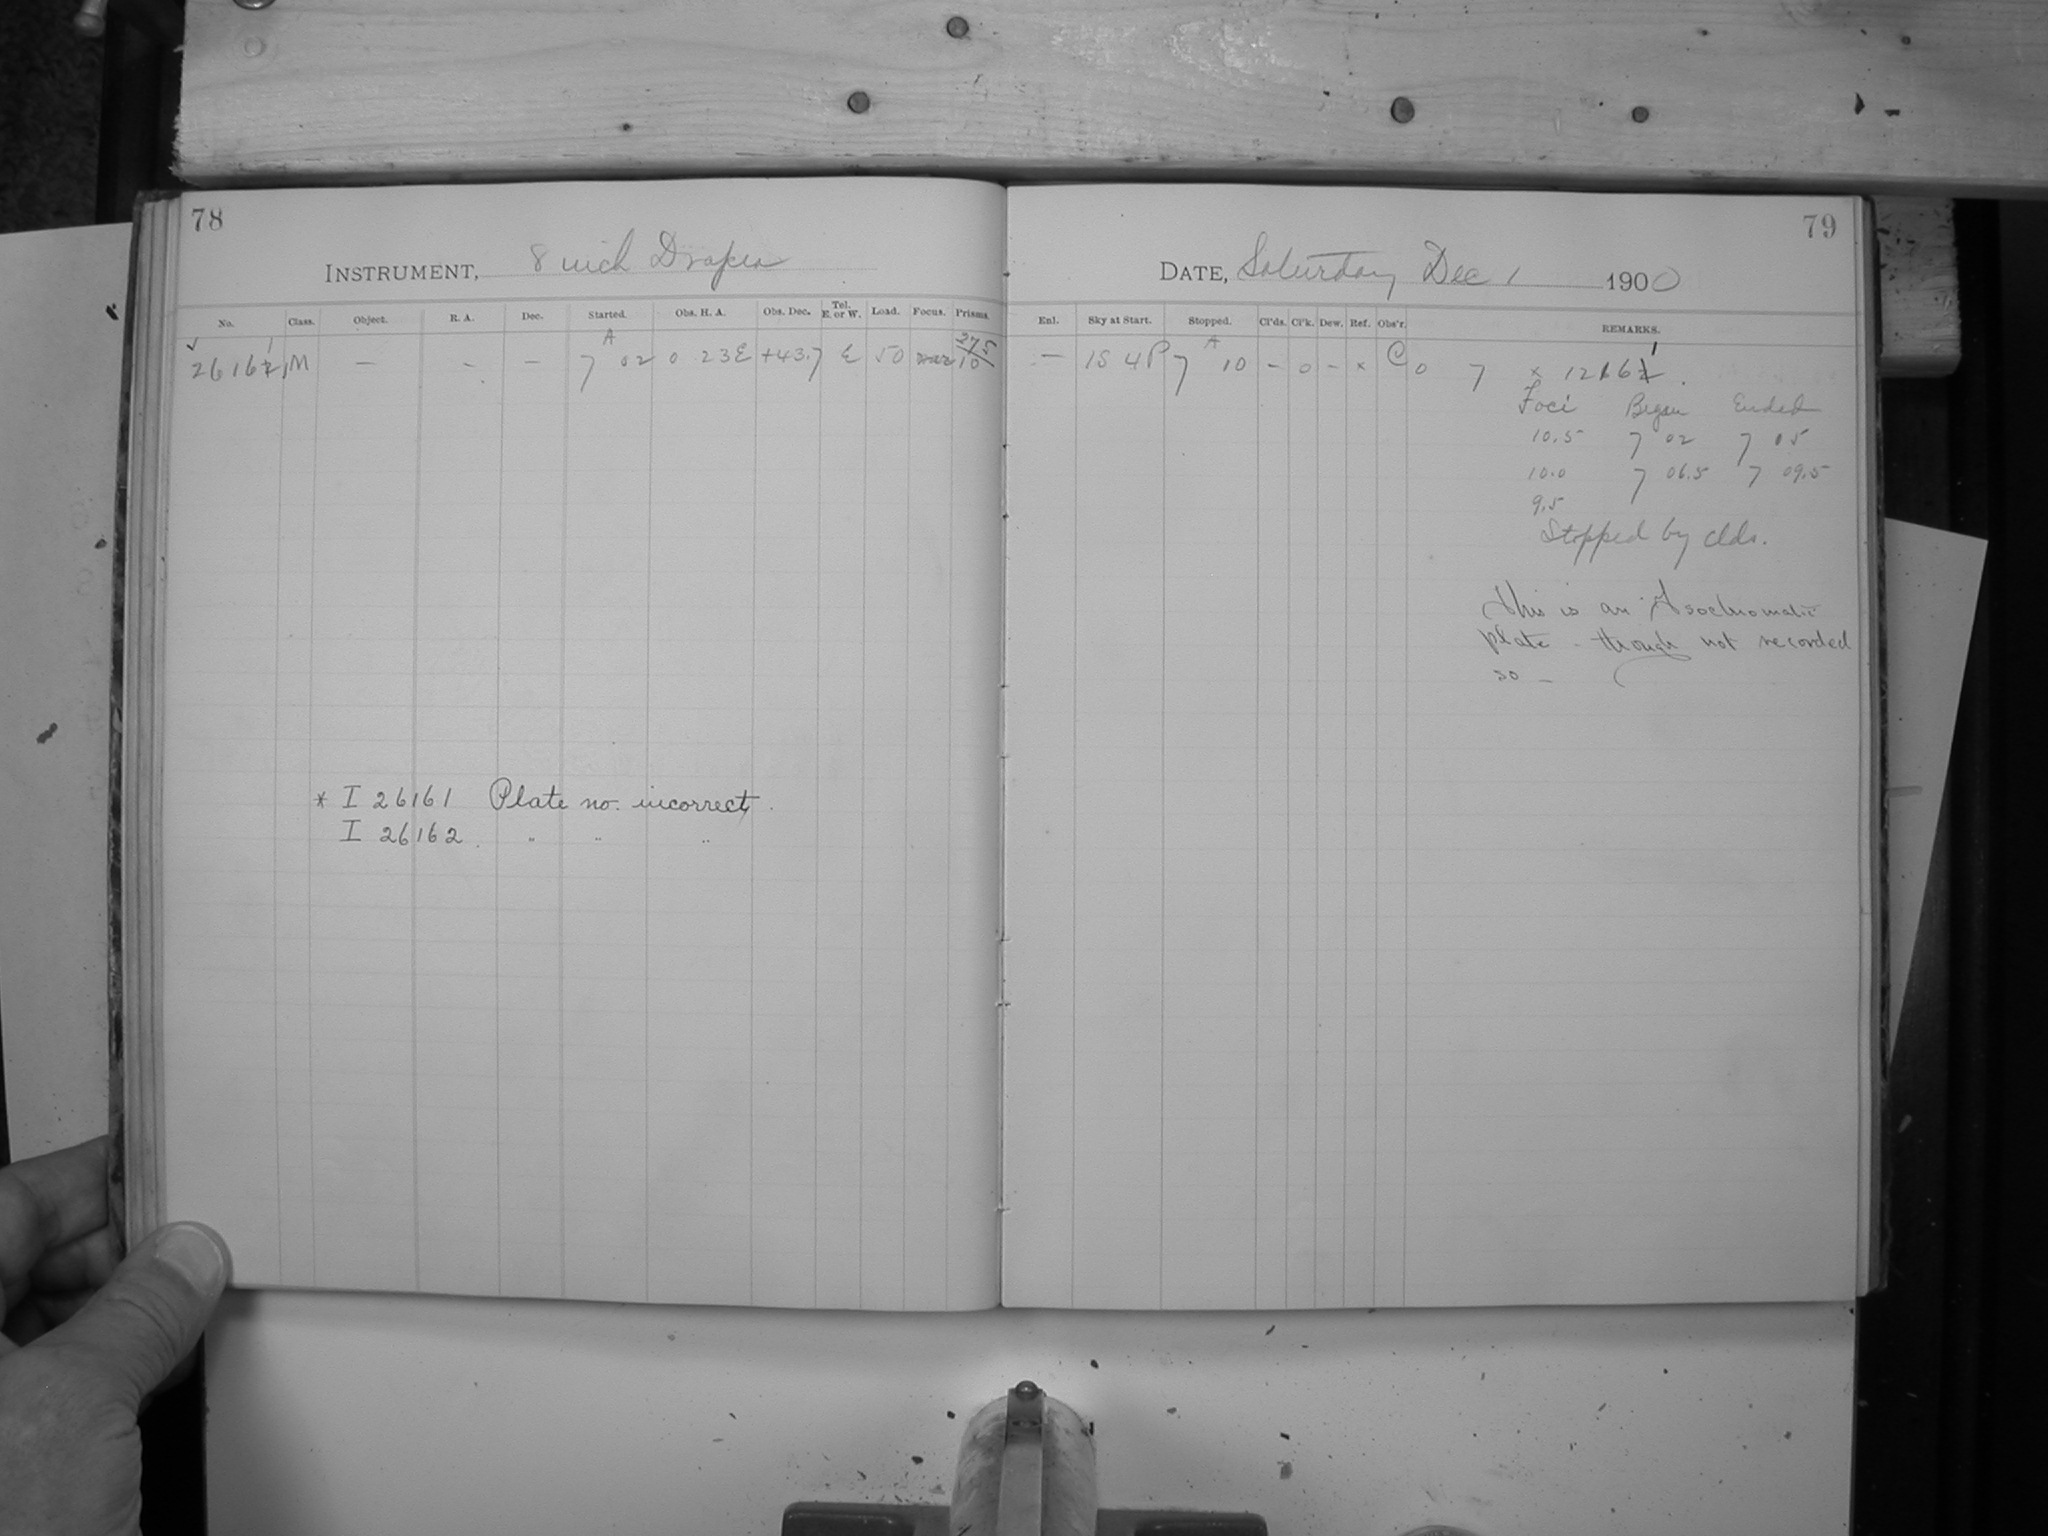 78
INSTRUMENT, 8 inch Draper
No. Class. Object. R. A. Dec. Started. Obs. H. A. Obs. Dec. Tel. E. or W. Load. Focus. Prisms.
26161 M — - — 7 A 02 0 23 E +43.7 E 50 10
* I 26161 Plate no. incorrect.
I 26162 " " "
79
DATE, Saturday Dec 1 1900
Enl. Sky at Start. Stopped. Cl'ds. Cl'k. Dew. Ref. Obs'r. REMARKS.
— 1S 4P 7 A 10 - 0 - x C 0 7 x
Foci Began Ended
10.5 7 02 7 05
10.0 7 06.5 7 09.5
9.5
Stopped by clds.
This is an Isochromatic
plate - though not recorded
so —